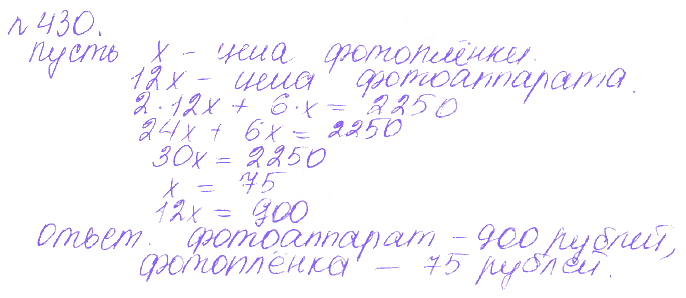 № 430.
Пусть x – цена фотоплёнки.
12x – цена фотоаппарата.
2·12x + 6·x = 2250
24x + 6x = 2250
30x = 2250
x = 75
12x = 900
Ответ. фотоаппарат – 900 рублей,
фотоплёнка – 75 рублей.